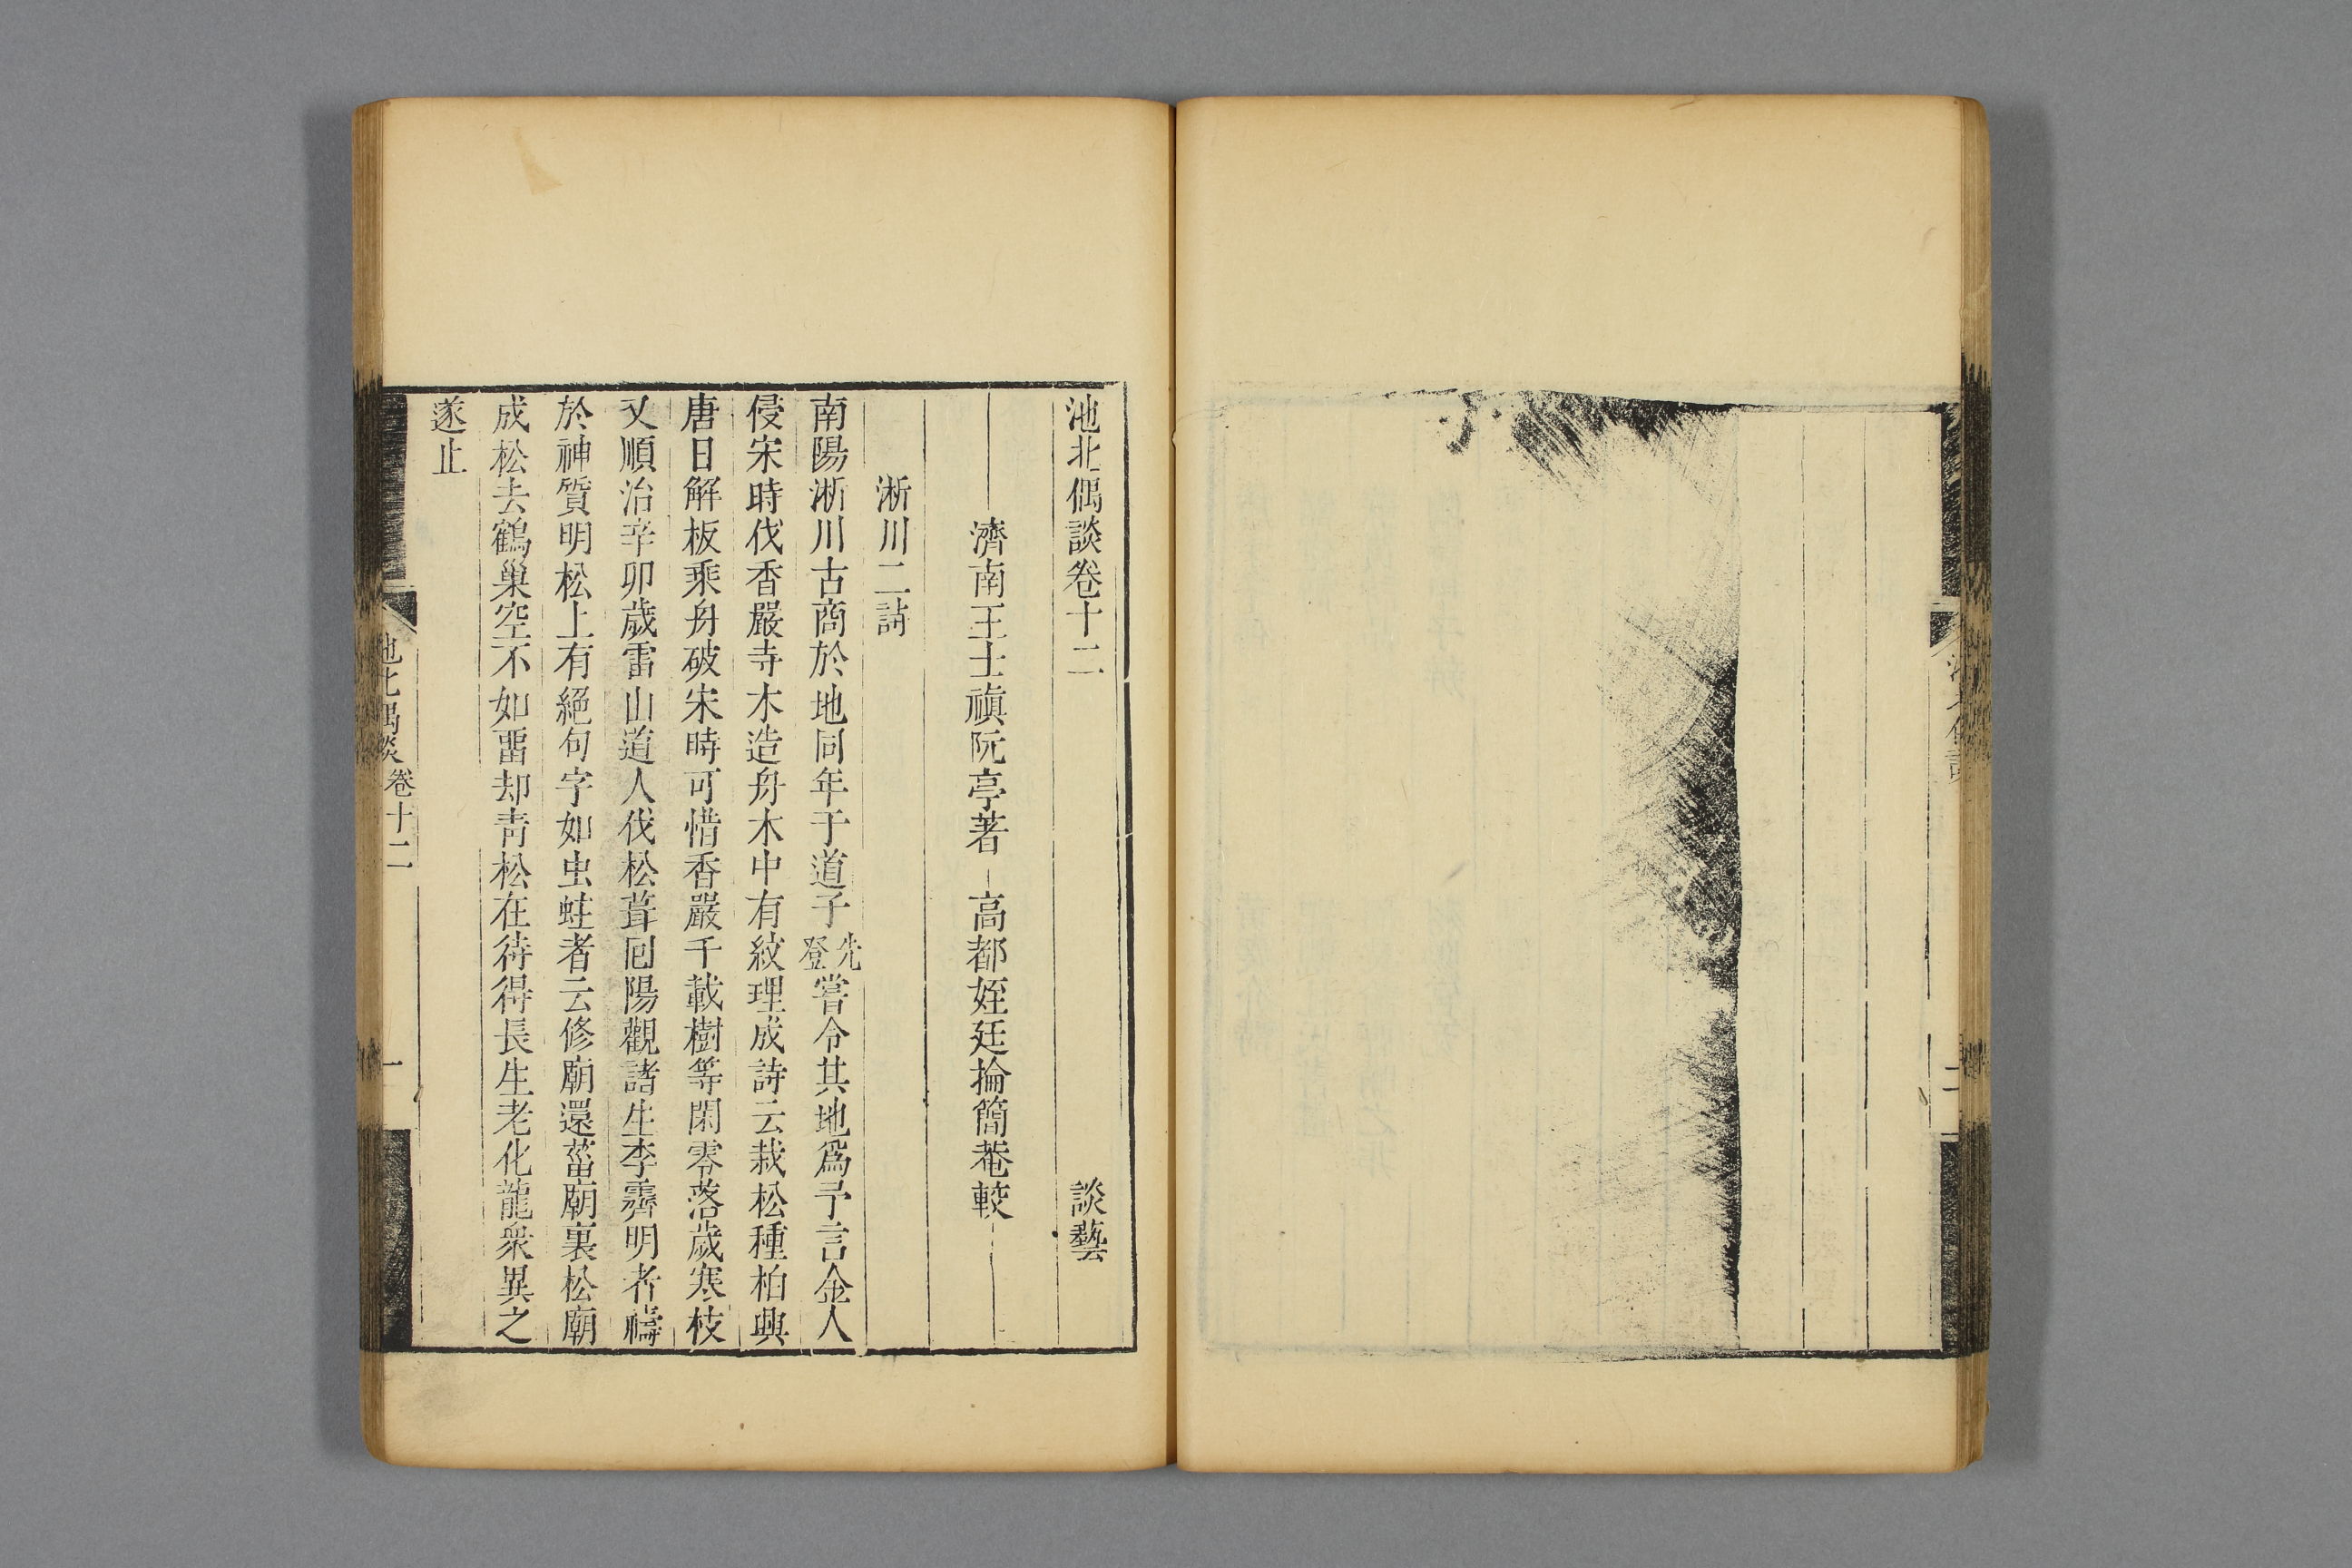 池北偶談卷十二　談藝
濟南王士禛阮亭著　高都姪廷掄簡菴較
淅川二詩
南陽淅川古商於地同年于道子先登嘗令其地爲予言金人
侵宋時伐香嚴寺木造舟木中有紋理成詩云栽松種柏興
唐日解板乘舟破宋時可惜香嚴千載樹等閑零落歲寒枝
又順治辛卯歲雷山道人伐松葺囘陽觀諸生李霽明者禱
於神質明松上有絕句字如虫蛀者云修廟還蓄廟裏松廟
成松去鶴巢空不如畱却靑松在待得長生老化龍衆異之
遂止
池北偶談　卷十二　一